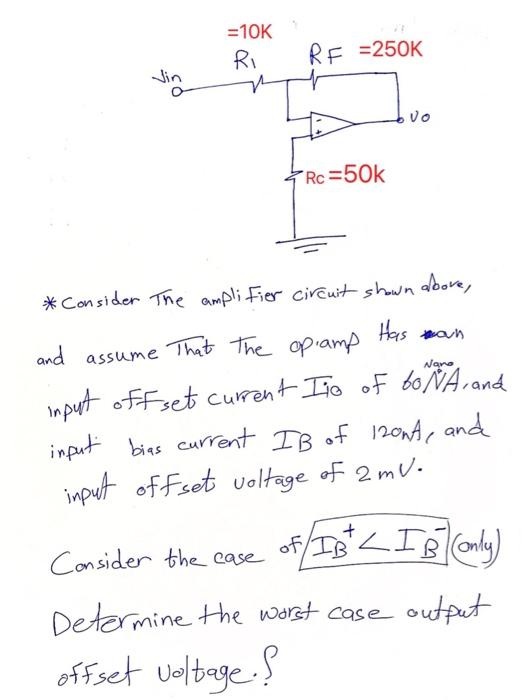 =10K
R1 RF =250K
Vin
-
+
Vo
Rc =50k
* Consider The amplifier circuit shown above,
and assume That The op.amp Has an
Nano
input offset current Iio of 60 NA, and
input bias current IB of 120nA, and
input offset voltage of 2 mV.
Consider the case of IB+ < IB- (only)
Determine the worst case output
offset voltage.?